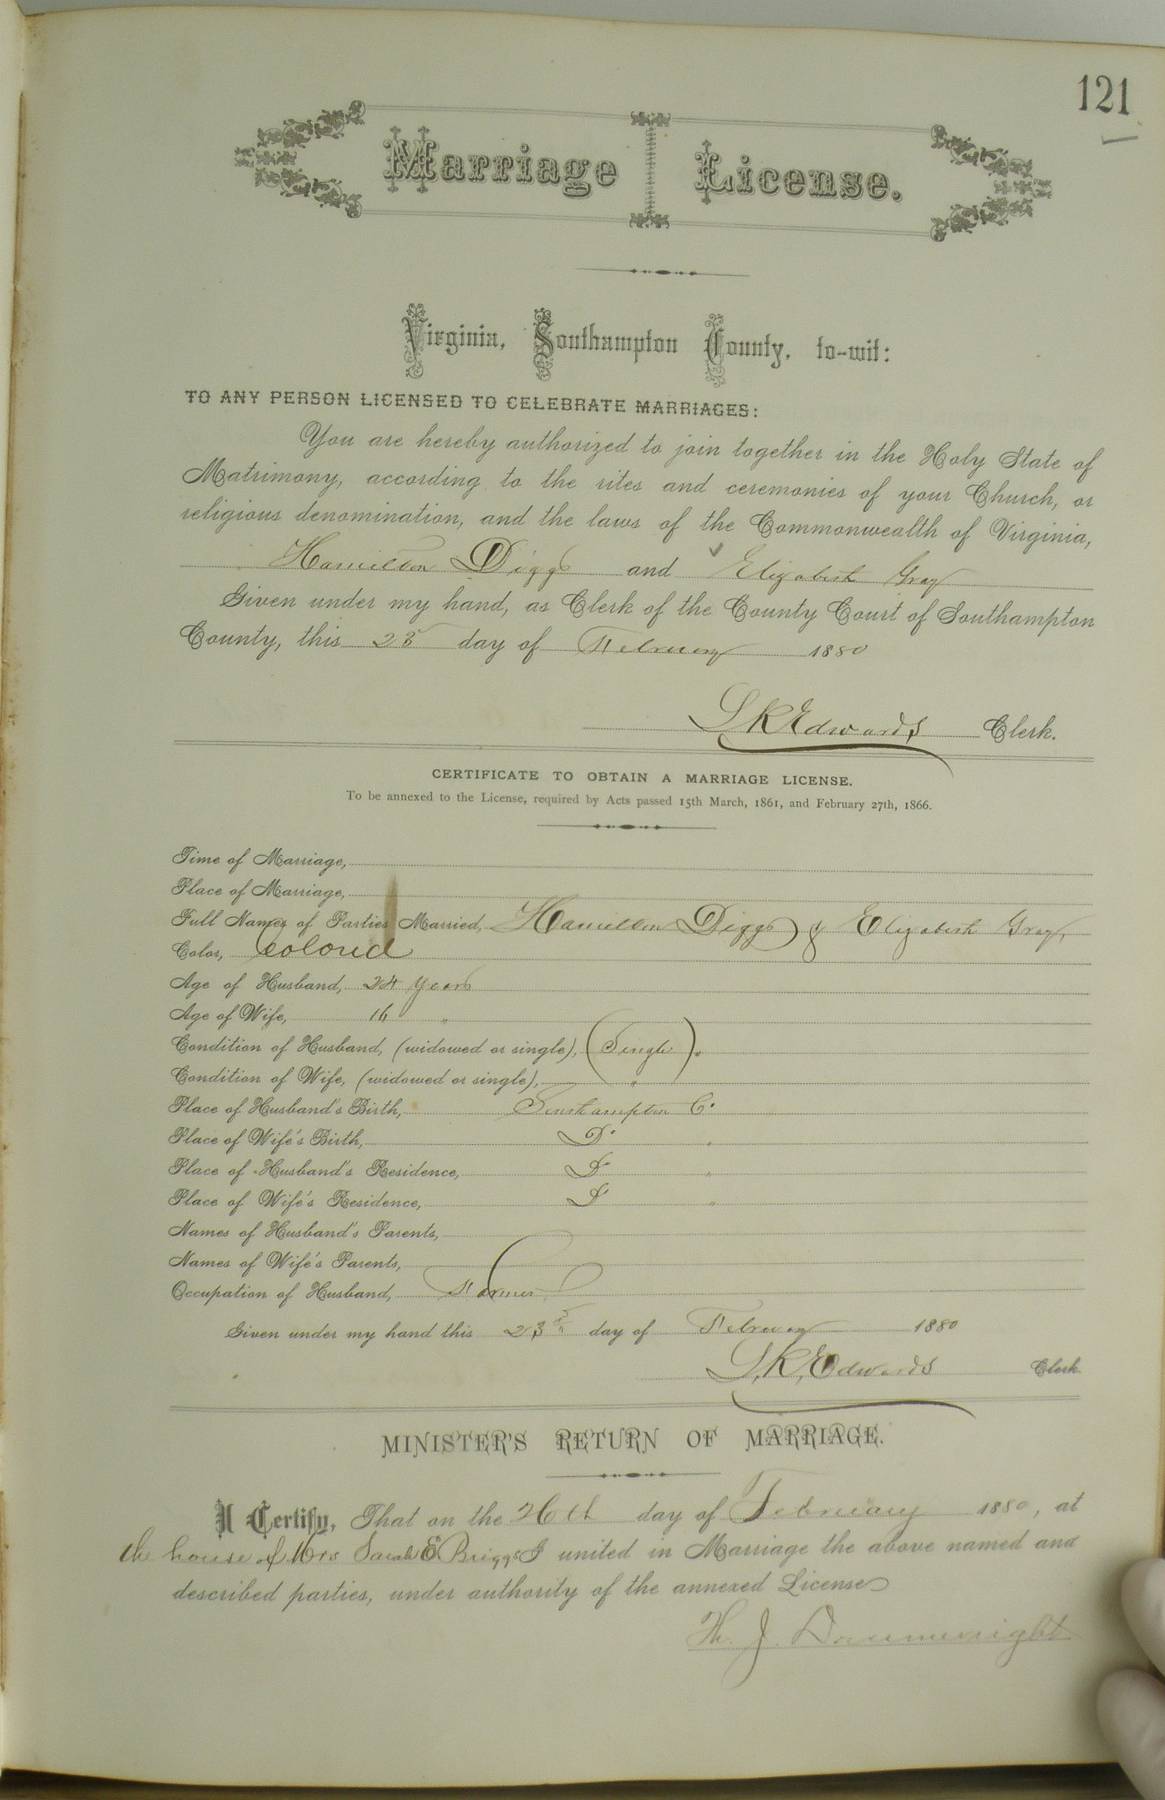 121
Marriage License.
Virginia, Southampton County, to-wit:
TO ANY PERSON LICENSED TO CELEBRATE MARRIAGES:
You are hereby authorized to join together in the Holy State of
Matrimony, according to the rites and ceremonies of your Church, or
religious denomination, and the laws of the Commonwealth of Virginia,
Hamilton Diggs and Elizabeth Gray
Given under my hand, as Clerk of the County Court of Southampton
County, this 23 day of February 1880
L K Edwards Clerk.
CERTIFICATE TO OBTAIN A MARRIAGE LICENSE.
To be annexed to the License, required by Acts passed 15th March, 1861, and February 27th, 1866.
Time of Marriage,
Place of Marriage,
Full Names of Parties Married, Hamilton Diggs & Elizabeth Gray,
Color, Colored
Age of Husband, 24 years
Age of Wife, 16 "
Condition of Husband, (widowed or single), (Single)
Condition of Wife, (widowed or single), "
Place of Husband's Birth, Southampton Co
Place of Wife's Birth, Do "
Place of Husband's Residence, Do "
Place of Wife's Residence, Do "
Names of Husband's Parents,
Names of Wife's Parents,
Occupation of Husband, Farmer
Given under my hand this 23 day of February 1880
L. K. Edwards Clerk
MINISTER'S RETURN OF MARRIAGE.
I Certify, That on the 26th day of February 1880, at
the house of Mrs Sarah E Briggs I united in Marriage the above named and
described parties, under authority of the annexed License
J.